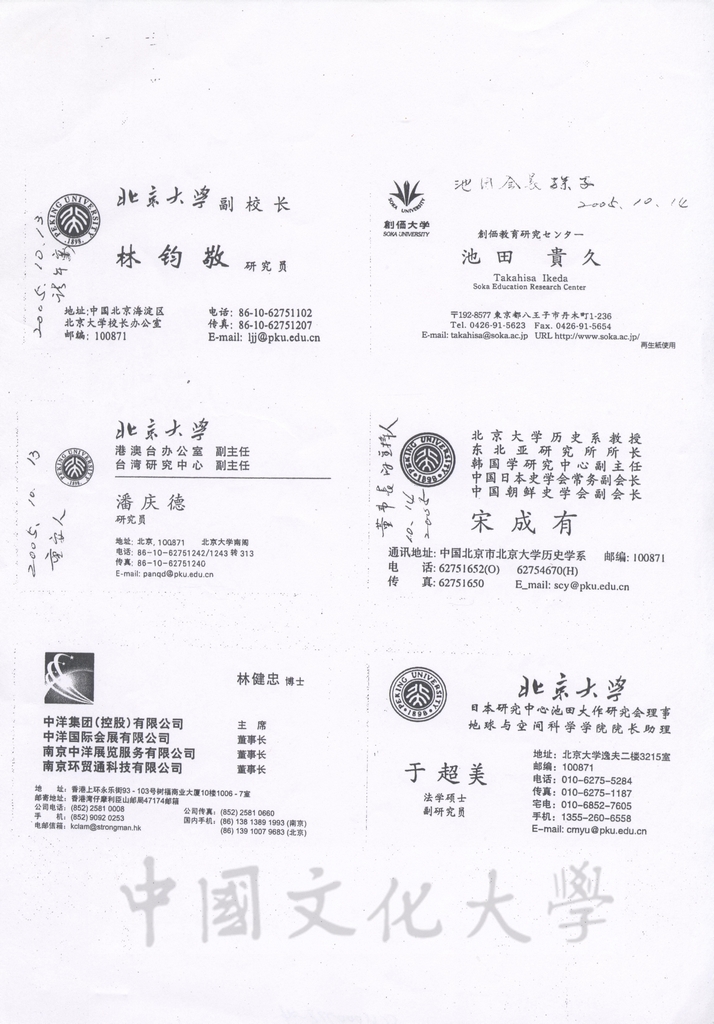 北京大学 副校长
PEKING UNIVERSITY
1898
林钧敬 研究员
2005.10.13
地址:中国北京海淀区
北京大学校长办公室
邮编: 100871
电话: 86-10-62751102
传真: 86-10-62751207
E-mail: ljj@pku.edu.cn
池田会長孫子
2005.10.14
SOKA UNIVERSITY
創価大学
SOKA UNIVERSITY
創価教育研究センター
池田 貴久
Takahisa Ikeda
Soka Education Research Center
〒192-8577 東京都八王子市丹木町1-236
Tel. 0426-91-5623 Fax. 0426-91-5654
E-mail: takahisa@soka.ac.jp URL http://www.soka.ac.jp/
再生紙使用
北京大学
港澳台办公室 副主任
台湾研究中心 副主任
PEKING UNIVERSITY
潘庆德
研究员
2005.10.13
地址: 北京, 100871 北京大学南阁
电话: 86-10-62751242/1243 转 313
传真: 86-10-62751240
E-mail: panqd@pku.edu.cn
PEKING UNIVERSITY
1898
北京大学历史系教授
东北亚研究所所长
韩国学研究中心副主任
中国日本史学会常务副会长
中国朝鲜史学会副会长
宋成有
通讯地址: 中国北京市北京大学历史学系 邮编: 100871
电 话: 62751652(O) 62754670(H)
传 真: 62751650 E_mail: scy@pku.edu.cn
林健忠 博士
中洋集团(控股)有限公司 主 席
中洋国际会展有限公司 董事长
南京中洋展览服务有限公司 董事长
南京环贸通科技有限公司 董事长
地 址: 香港上环永乐街93 - 103号树福商业大厦10楼1006 - 7室
邮寄地址: 香港湾仔摩利臣山邮局47174邮箱
公司电话: (852) 2581 0008 公司传真: (852) 2581 0660
手 机: (852) 9092 0253 国内手机: (86) 138 1389 1993 (南京)
电邮信箱: kclam@strongman.hk (86) 139 1007 9683 (北京)
PEKING UNIVERSITY
1898
北京大学
日本研究中心池田大作研究会理事
地球与空间科学学院院长助理
于超美
法学硕士
副研究员
地址: 北京大学逸夫二楼3215室
邮编: 100871
电话: 010-6275-5284
传真: 010-6275-1187
宅电: 010-6852-7605
手机: 1355-260-6558
E-mail: cmyu@pku.edu.cn
中國文化大學